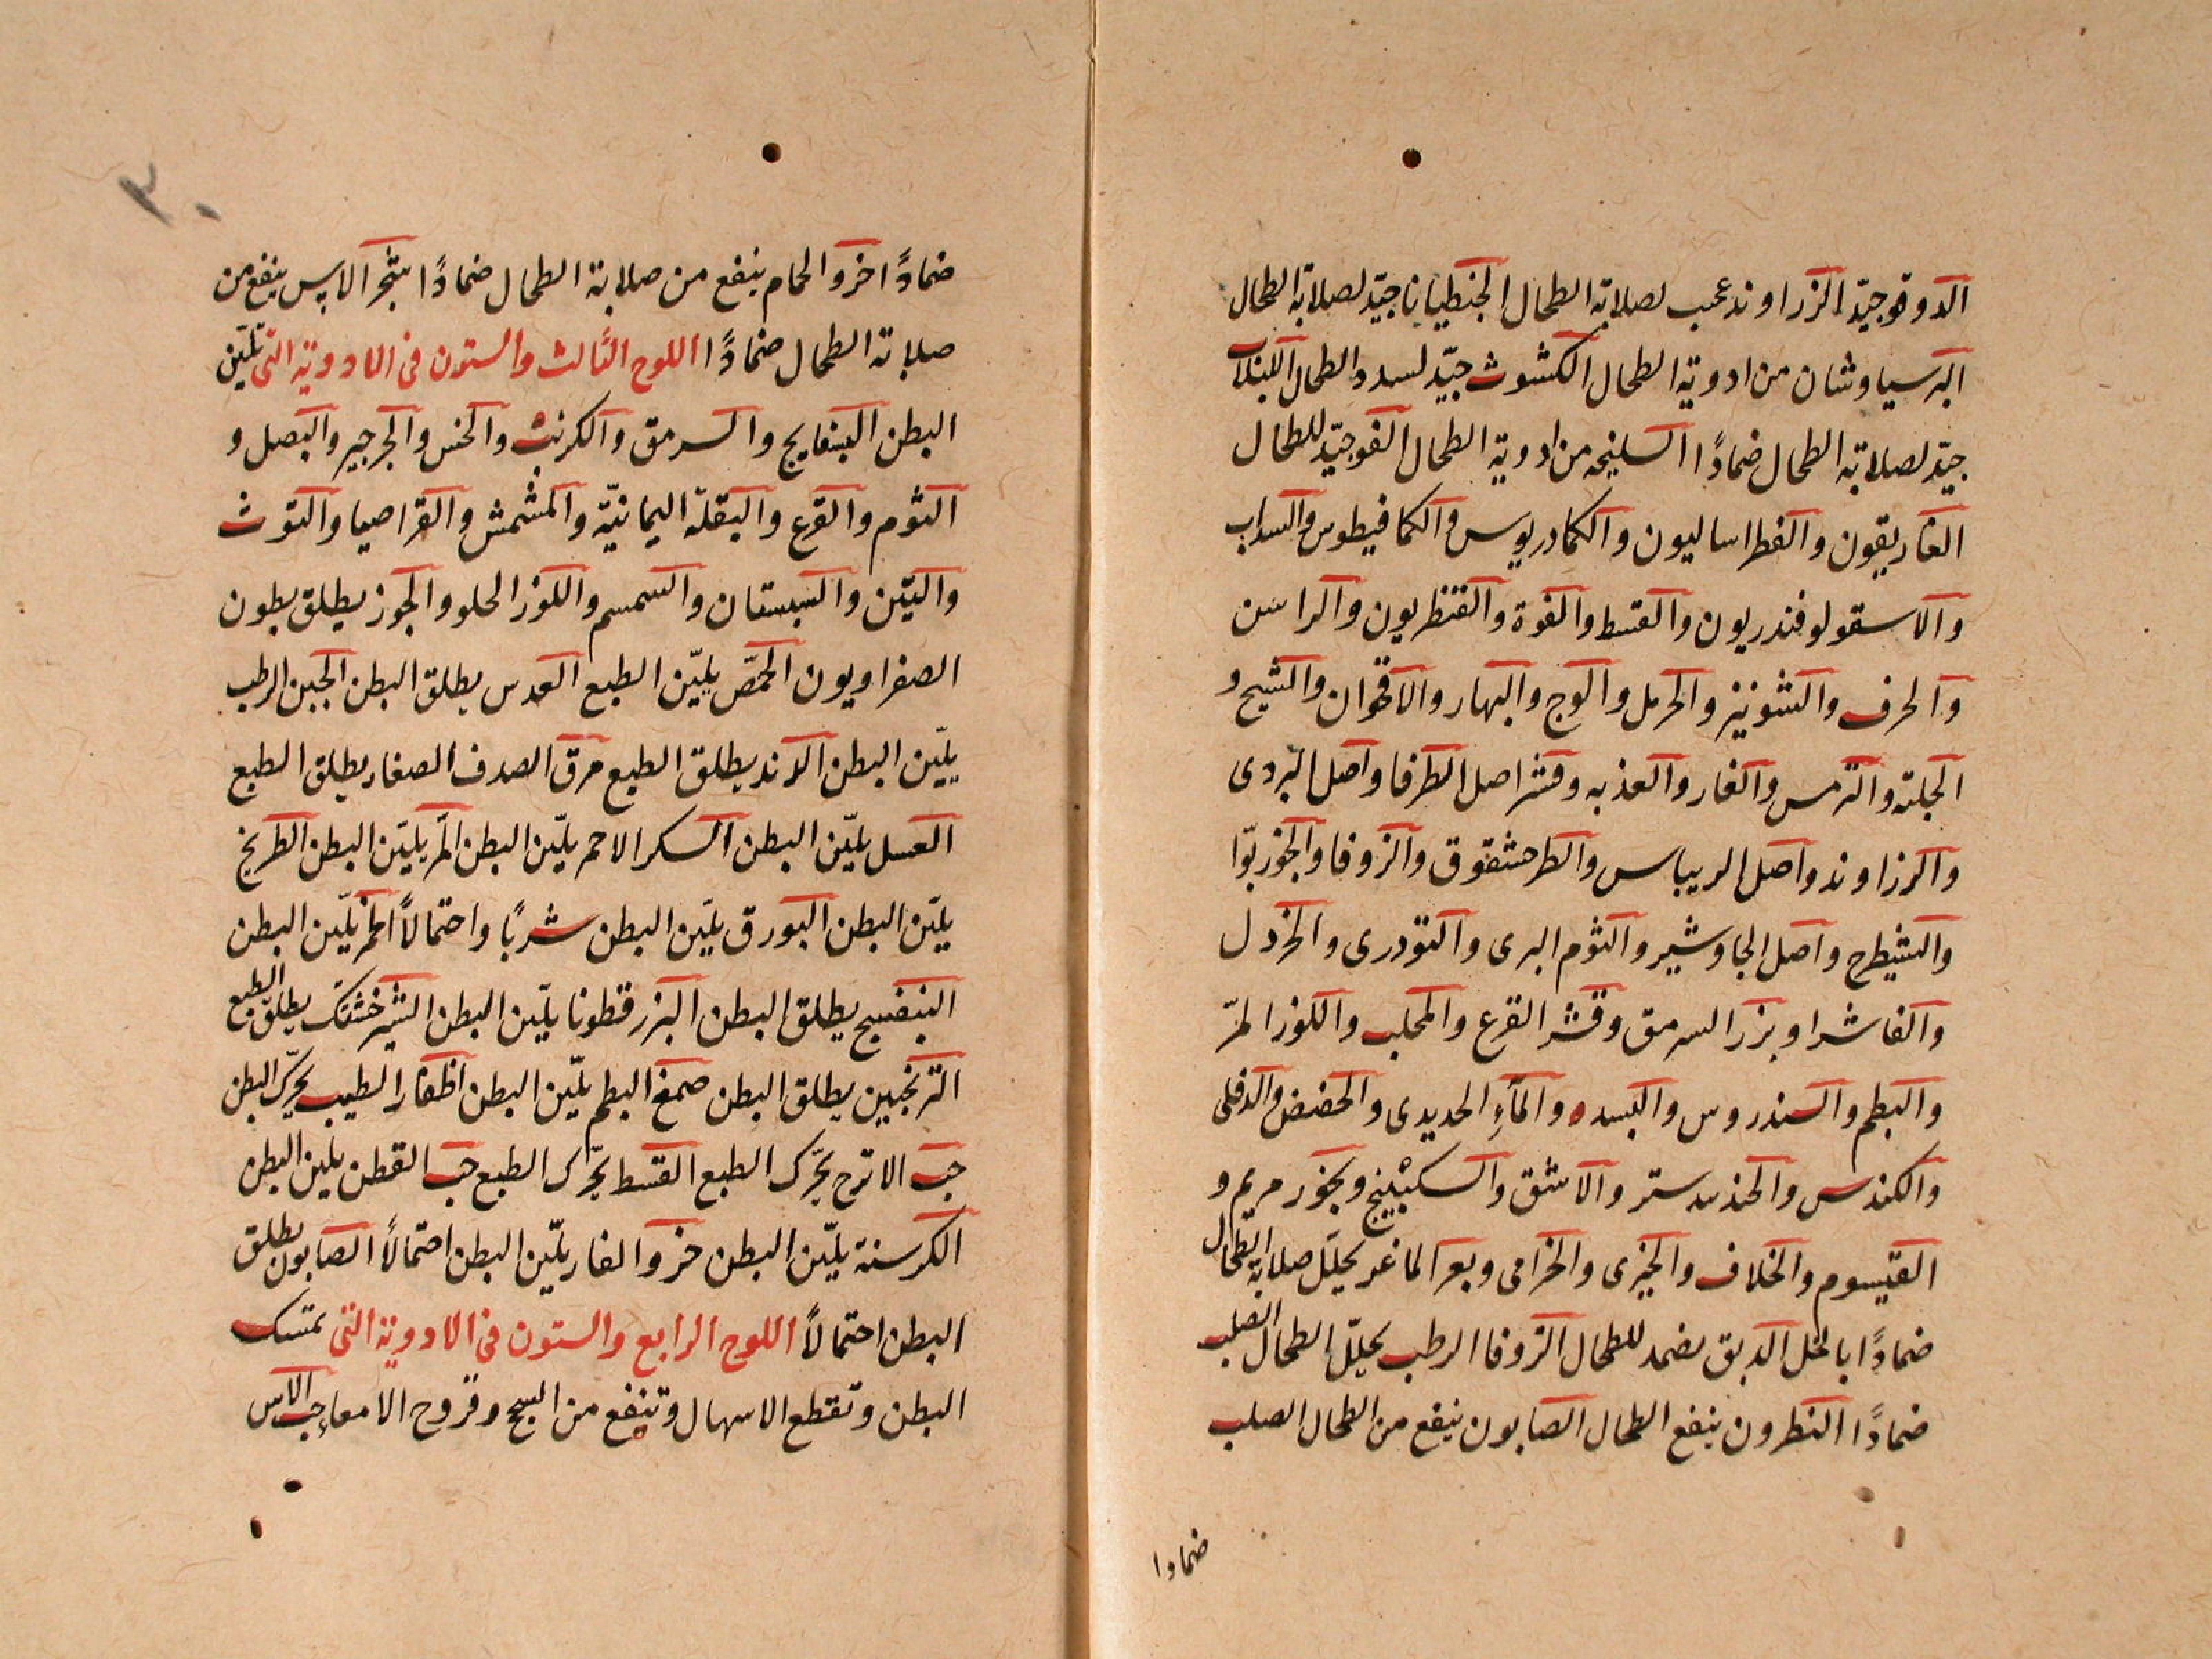 الدوقو جيّد الزراوند عجيب لصلابة الطحال الجنطيانا جيّد لصلابة الطحال
البرسياوشان من ادوية الطحال الكشوث جيّد لسدد الطحال اللبلاب
جيّد لصلابة الطحال ضمادًا السليخه من ادوية الطحال الفو جيّد للطحال
الغاريقون والفطراساليون والكمادريوس والكمافيطوس والسداب
والاسقولوفندريون والقسط والفوة والقنطريون والراسن
والحرف والشونيز والحرمل والوج والبهار والاقحوان والشيح و
الجلتة والترمس والغار والعذبه وقشر اصل الطرفا واصل البردى
والرزاوند واصل الريباس والطرحشقوق والزوفا والجوزبوّا
والشيطرح واصل الجاوشير والثوم البرى والتودرى والخردل
والفاشرا وبزر السرمق وقشر القرع والمحلب واللوز المرّ
والبطم والسندروس والبسده والمآءِ الحديدى والحضض والدفلى
والكندس والجندبدستر والاشق والسكبينج وبخور مريم و
القيسوم والخلاف والخيرى والخزامى وبعر الماعز يحلّل صلابة الطحال
ضمادًا بالخل الدبق يضمد للطحال الزوفا الرطب يحلّل الطحال الصلب
ضمادًا النطرون ينفع الطحال الصابون ينفع من الطحال الصلب
ضمادا
٣٠
ضمادًا خرو الحمام ينفع من صلابة الطحال ضمادًا شجر الاس ينفع من
صلابة الطحال ضمادًا اللوح الثالث والستون فى الادوية التى تليّن
البطن البسفايج والسرمق والكرنب والخس والجرجير والبصل و
الثوم والقرع والبقلة اليمانيّة والمشمش والقراصيا والتوث
والتين والسبستان والسمسم واللوز الحلو والجوز يطلق بطون
الصفراويون الحمّص يليّن الطبع العدس يطلق البطن الجبن الرطب
يليّن البطن الاند يطلق الطبع مرق الصدف الصغار يطلق الطبع
العسل يليّن البطن السكر الاحمر يليّن البطن المرّ يليّن البطن الطريخ
يليّن البطن البورق يليّن البطن شربًا واحتمالاً المر يليّن البطن
البنفسج يطلق البطن البزرقطونا يليّن البطن الشيرخشتك يطلق الطبع
الترنجبين يطلق البطن صمغ البطم يليّن البطن اظفار الطيب يحرّك البطن
حب الاترج يحرّك الطبع القسط يحرّك الطبع حب القطن يلين البطن
الكرسنة يليّن البطن خرو الفار يليّن البطن احتمالاً الصابون يطلق
البطن احتمالاً اللوح الرابع والستون فى الادوية التى تمسك
البطن وتقطع الاسهال وتنفع من السحج وقروح الامعاءِ حب الاس